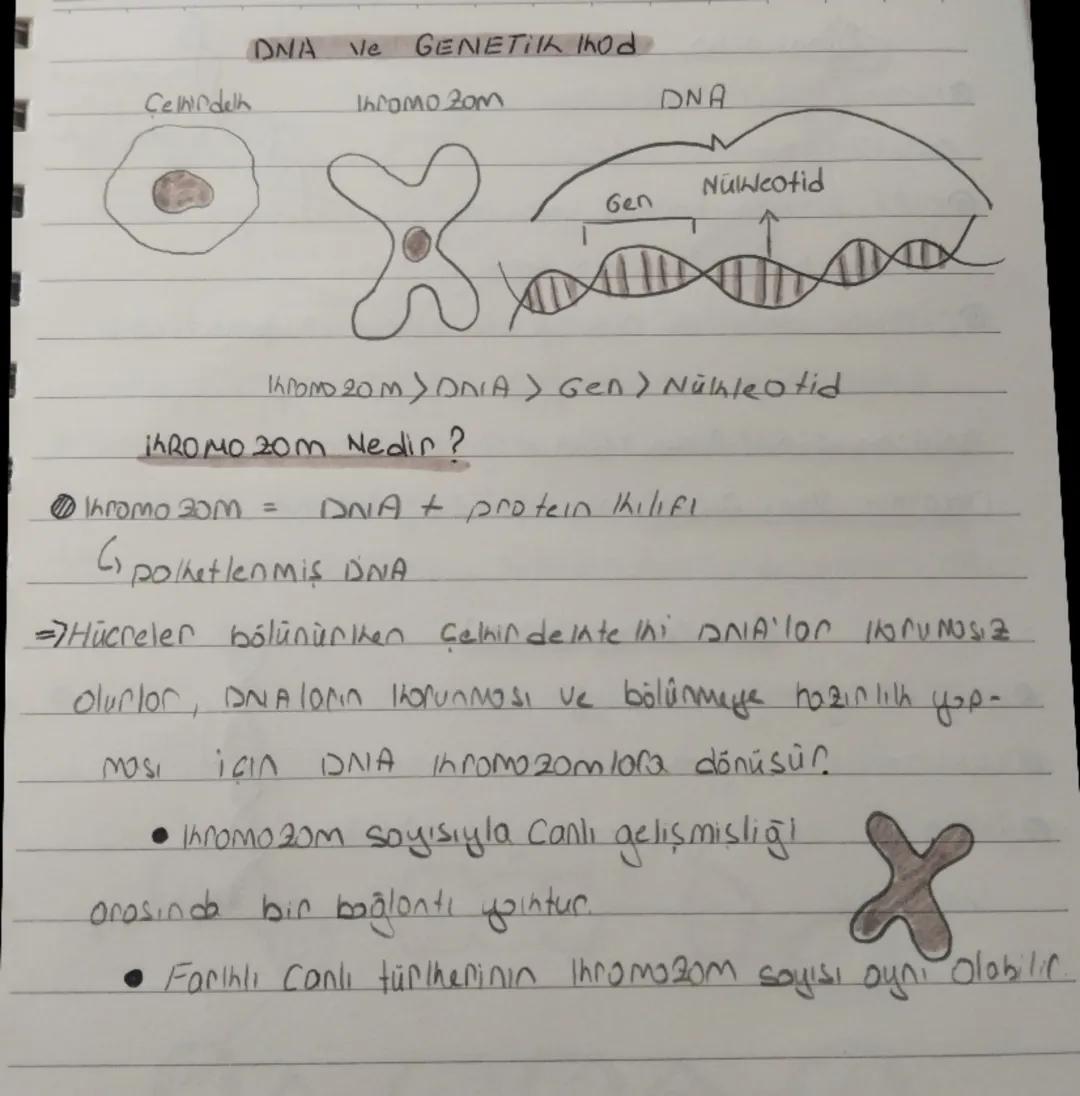 DNA ve GENETİK KOD
Çekirdek Kromozom DNA
Gen Nükleotid
Kromozom > DNA > Gen > Nükleotid
KROMOZOM Nedir?
Kromozom = DNA + protein kılıfı
↳ paketlenmiş DNA
⇒ Hücreler bölünürken çekirdekteki DNA'lar korumasız
olurlar, DNAların korunması ve bölünmeye hazırlık yap-
ması için DNA kromozomlara dönüşür.
• Kromozom sayısıyla Canlı gelişmişliği
arasında bir bağlantı yoktur.
• Farklı Canlı türkerinin kromozom sayısı aynı olabilir.